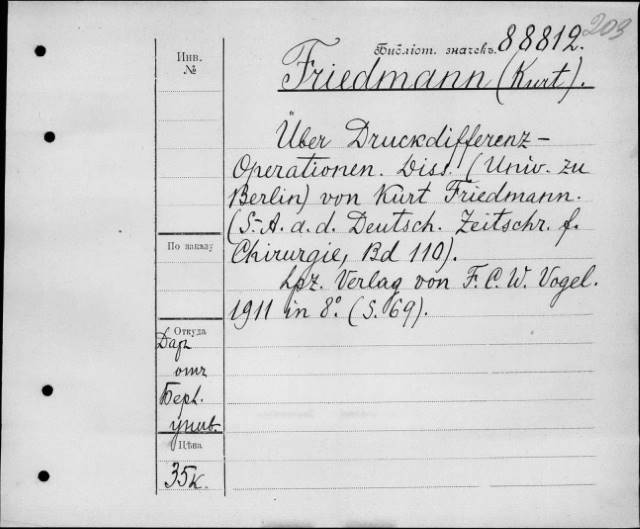 203
Библіот. значекъ. 88812.
Инв.
№
Friedmann (Kurt).
Über Druckdifferenz-
Operationen. Diss. (Univ. zu
Berlin) von Kurt Friedmann.
(S.-A. d. d. Deutsch. Zeitschr. f.
Chirurgie, Bd 110).
Lpz. Verlag von F. C. W. Vogel.
1911 in 8°. (S. 69).
По заказу
Откуда
Даръ
отъ
Берл.
унив.
Цѣна
35к.